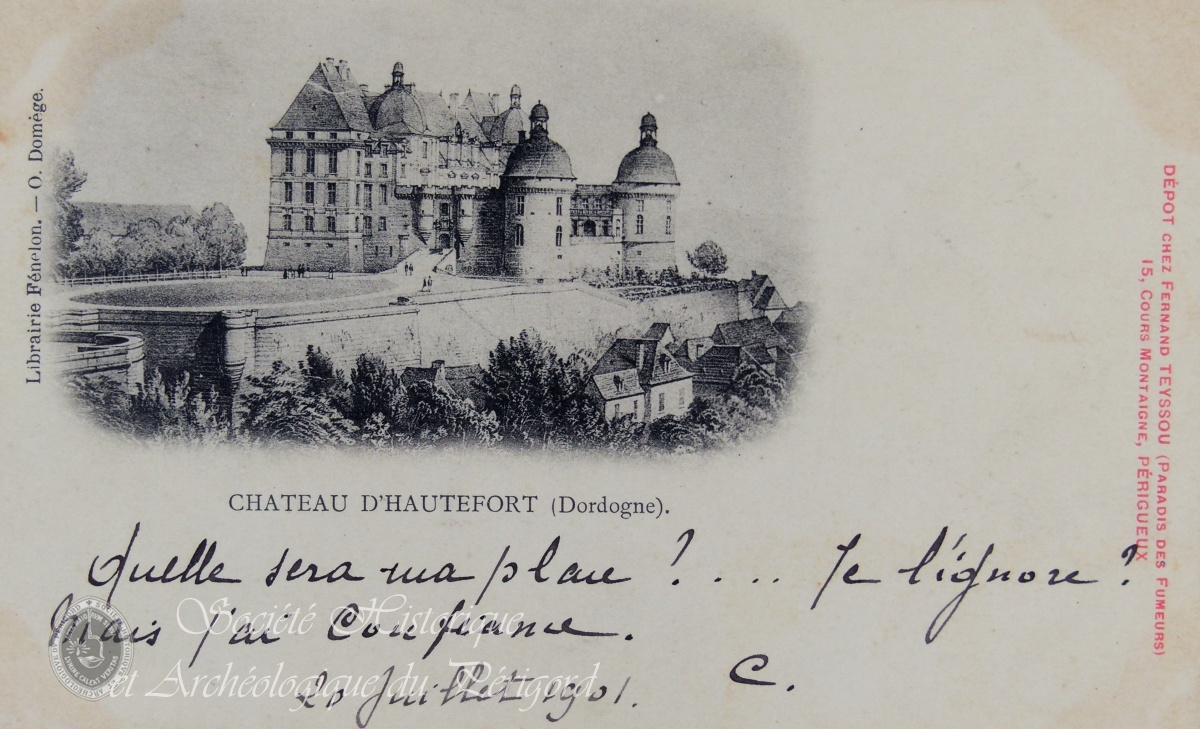 Librairie Fénelon. — O. Domège.
CHATEAU D'HAUTEFORT (Dordogne).
DÉPOT CHEZ FERNAND TEYSSOU (PARADIS DES FUMEURS)
15, COURS MONTAIGNE, PÉRIGUEUX
Quelle sera ma place ? .... Je l'ignore ?
Mais j'ai Confiance.
20 Juillet 1901.
C.
Société Historique
et Archéologique du Périgord